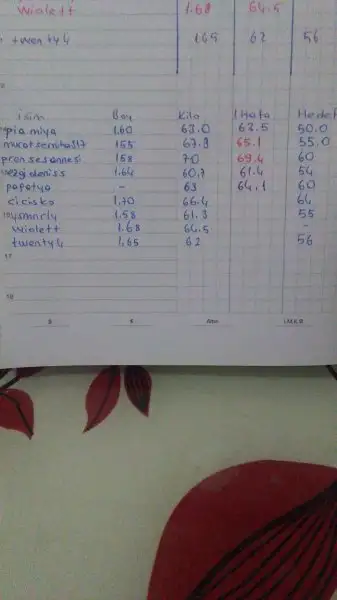 wialett 1.68 64.5
twenty4 1.65 62 56
isim Boy Kilo 1 Hafta Hedef
piamiya 1.60 63.0 62.5 50.0
155 67.3 65.1 55.0
prensesannesi 158 70 69.4 60
ezgideniss 1.64 60,7 61.4 54
papatya - 63 64,1 60
cicisko 1,70 66.4 64
1.58 61.3 55
wialett 1.68 64.5 -
twenty4 1,65 62 56
17
18
$ € Altın İ.M.K.B